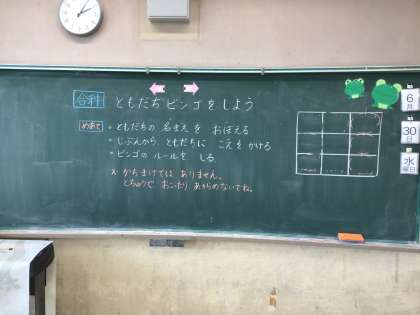 合科 ともだちビンゴをしよう
めあて
・ともだちの名まえを おぼえる
・じぶんから、ともだちに こえをかける
・ビンゴの ルールを しる
※かちまけでは ありません。
とちゅうで おこったり、あきらめないでね。
6月
30日
水曜日